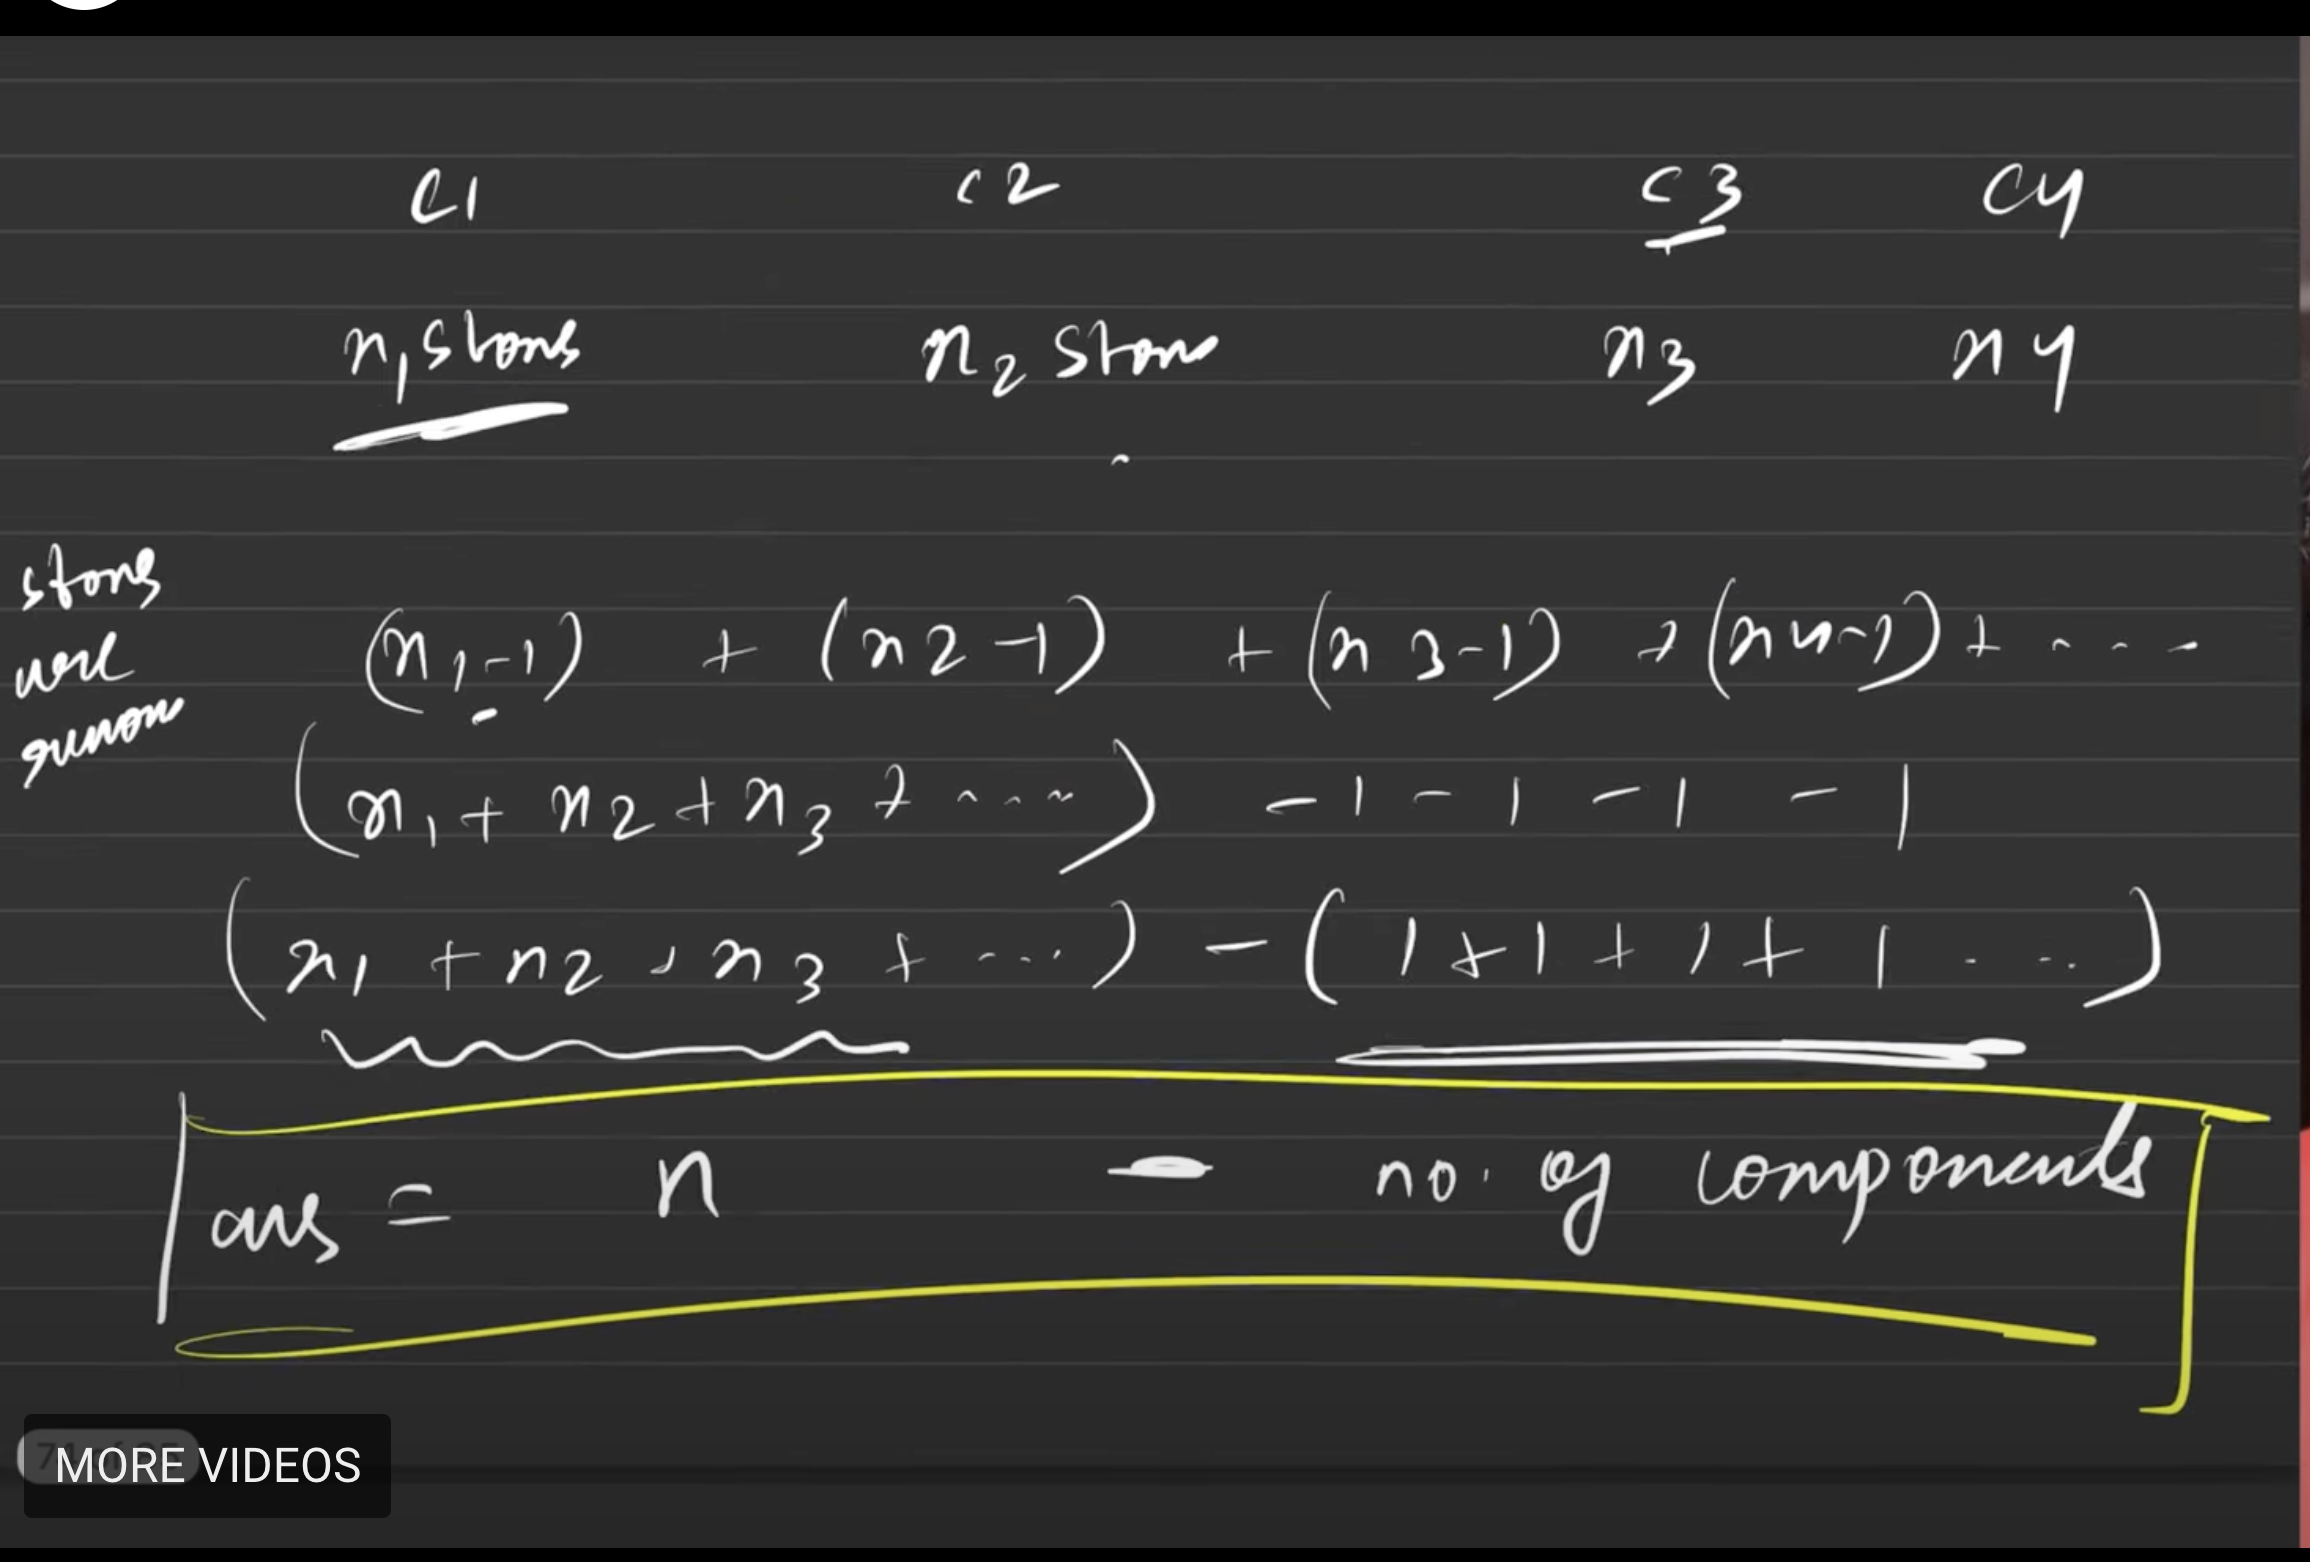 C1 C2 C3 C4
n1 stones n2 stones n3 n4
stones
were
(n1-1) + (n2-1) + (n3-1) + (n4-1) + ....
(n1 + n2 + n3 + ....) - 1 - 1 - 1 - 1
(n1 + n2 + n3 + ....) - (1 + 1 + 1 + 1 ...)
ans = n - no. of components
MORE VIDEOS